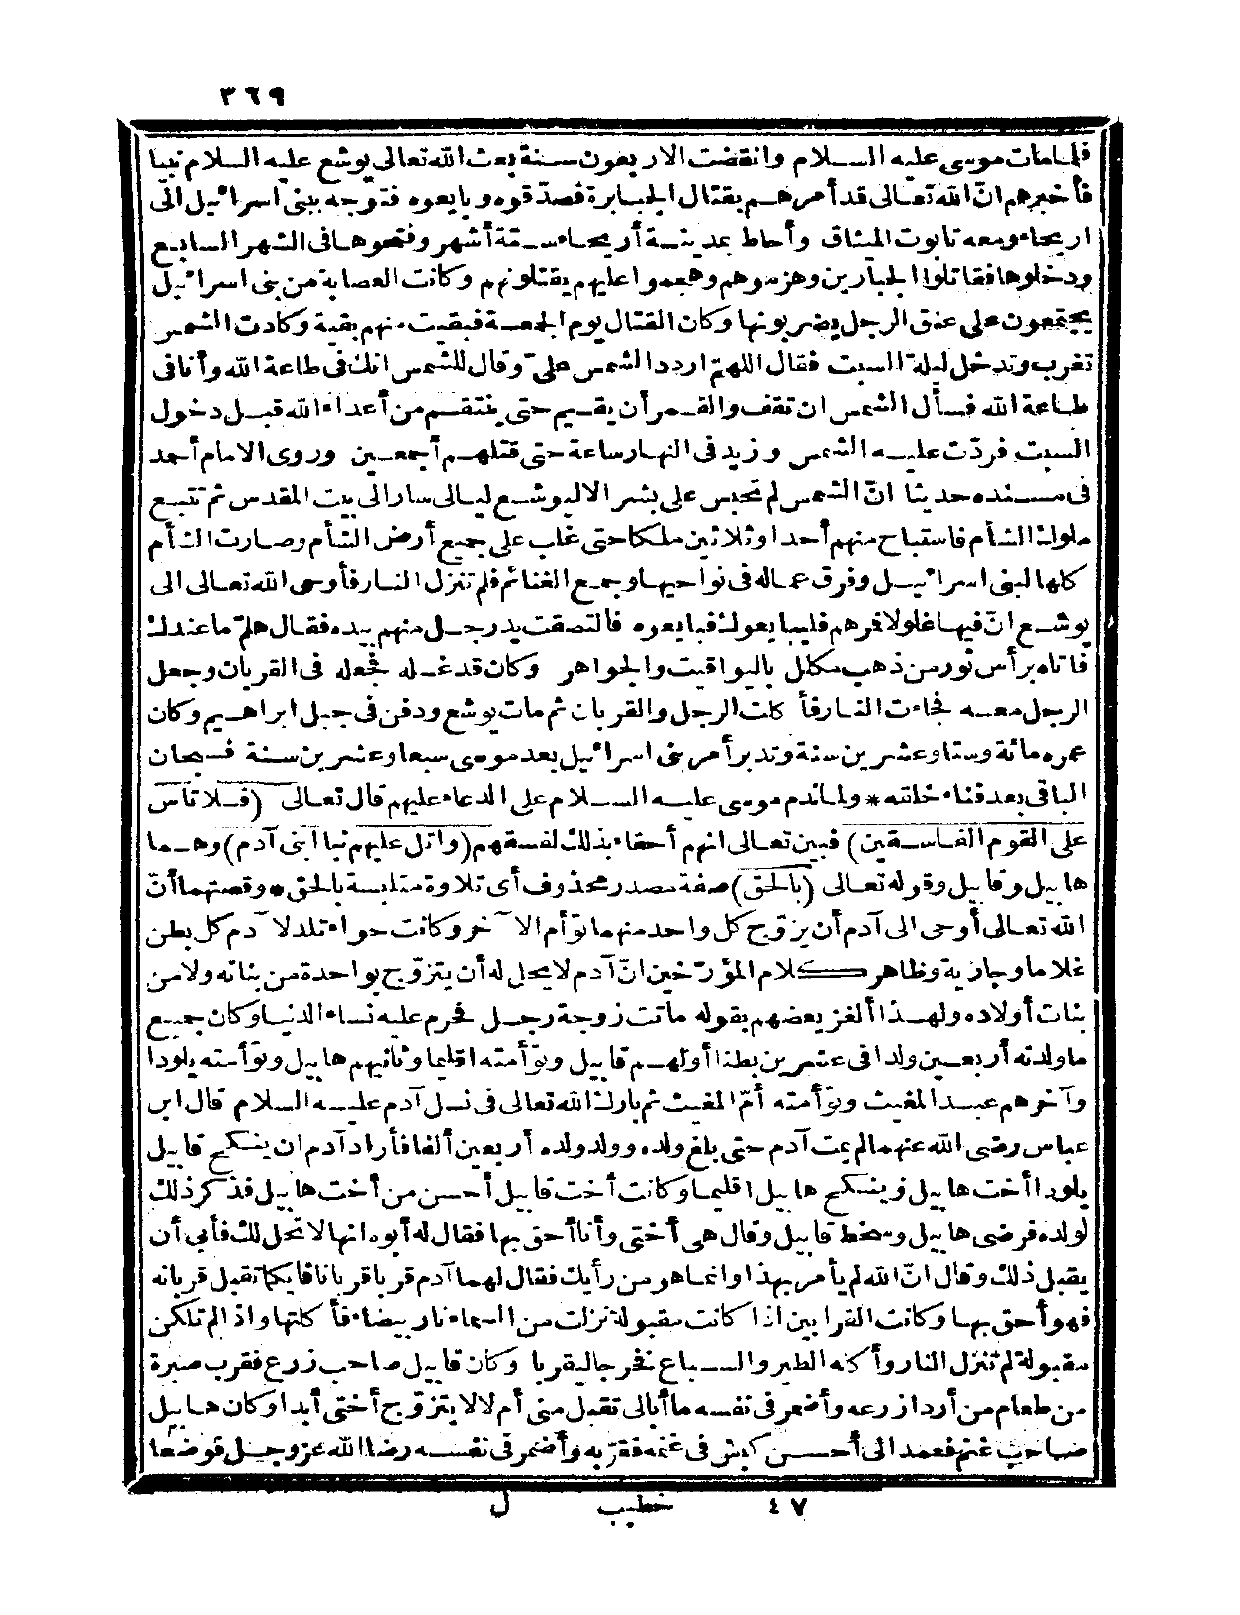 ٣٦٩
فلما مات موسى عليه السلام وانقضت الاربعون سنة بعث الله تعالى يوشع عليه السلام نبيا
فأخبرهم انّ الله تعالى قد أمرهم بقتال الجبابرة فصدّقوه وبايعوه فتوجه ببنى اسرائيل الى
اريحاء ومعه تابوت الميثاق وأحاط بمدينة أريحاء ستة أشهر وفتحوها فى الشهر السابع
ودخلوها فقاتلوا الجبارين وهزموهم وهجموا عليهم يقتلونهم وكانت العصابة من بنى اسرائيل
يجتمعون على عنق الرجل يضربونها وكان القتال يوم الجمعة فبقيت منهم بقية وكادت الشمس
تغرب وتدخل ليلة السبت فقال اللهمّ اردد الشمس علىّ وقال للشمس انك فى طاعة الله وأنا فى
طاعة الله فسأل الشمس ان تقف والقمر أن يقيم حتى ينتقم من أعداء الله قبل دخول
السبت فردّت عليه الشمس وزيد فى النهار ساعة حتى قتلهم أجمعين وروى الامام أحمد
فى مسنده حديثا انّ الشمس لم تحبس على بشر الا ليوشع ليالى سار الى بيت المقدس ثم تتبع
ملوك الشأم فاستباح منهم أحدا وثلاثين ملكا حتى غلب على جميع أرض الشأم وصارت الشأم
كلها لبنى اسرائيل وفرق عماله فى نواحيها وجمع الغنائم فلم تنزل النار فأوحى الله تعالى الى
يوشع انّ فيها غلولا فرهم فليبايعوك فبايعوه فالتصقت يد رجل منهم بيده فقال هلمّ ما عندك
فاتاه برأس ثور من ذهب مكلل باليواقيت والجواهر وكان قد غله فجعله فى القربان وجعل
الرجل معه فجاءت النار فأكلت الرجل والقربان ثم مات يوشع ودفن فى جبل ابراهيم وكان
عمره مائة وستا وعشرين سنة وتدبر أمر بنى اسرائيل بعد موسى سبعا وعشرين سنة فسبحان
الباقى بعد فناء خلقه * ولما ندم موسى عليه السلام على الدعاء عليهم قال تعالى (فلا تأس
على القوم الفاسقين) فبين تعالى انهم أحقاء بذلك لفسقهم (واتل عليهم نبأ ابنى آدم) وهما
هابيل وقابيل وقوله تعالى (بالحق) صفة مصدر محذوف أى تلاوة متلبسة بالحق * وقصتهما أنّ
الله تعالى أوحى الى آدم أن يزوّج كل واحد منهما توأم الآخر وكانت حواء تلد لآدم كل بطن
غلاما وجارية وظاهر كلام المؤرّخين انّ آدم لا يحل له أن يتزوّج بواحدة من بناته ولا من
بنات أولاده ولهذا ألغز بعضهم بقوله ماتت زوجة رجل فحرم عليه نساء الدنيا وكان جميع
ما ولدته أربعين ولدا فى عشرين بطنا أولهم قابيل وتوأمته اقليما وثانيهم هابيل وتوأمته يلودا
وآخرهم عبد المغيث وتوأمته أمّ المغيث ثم بارك الله تعالى فى نسل آدم عليه السلام قال ابن
عباس رضى الله عنهما لم يمت آدم حتى بلغ ولده وولد ولده أربعين ألفا فأراد آدم ان ينكح قابيل
يلودا أخت هابيل وينكح هابيل اقليما وكانت أخت قابيل أحسن من أخت هابيل فذكر ذلك
لولده فرضى هابيل وسخط قابيل وقال هى أختى وأنا أحق بها فقال له أبوه انها لا تحل لك فأبى أن
يقبل ذلك وقال انّ الله لم يأمر بهذا وانما هو من رأيك فقال لهما آدم قربا قربانا فايكما تقبل قربانه
فهو أحق بها وكانت القرابين اذا كانت مقبولة نزلت من السماء نار بيضاء فأكلتها واذا لم تكن
مقبولة لم تنزل النار وأكله الطير والسباع فخرجا ليقربا وكان قابيل صاحب زرع فقرب صبرة
من طعام من أردا زرعه وأضمر فى نفسه ما أبالى تقبل منى أم لا لا يتزوّج أختى أبدا وكان هابيل
صاحب غنم فعمد الى أحسن كبش فى غنمه فقربه وأضمر فى نفسه رضا الله عز وجل فوضعا
٤٧ خطيب ل